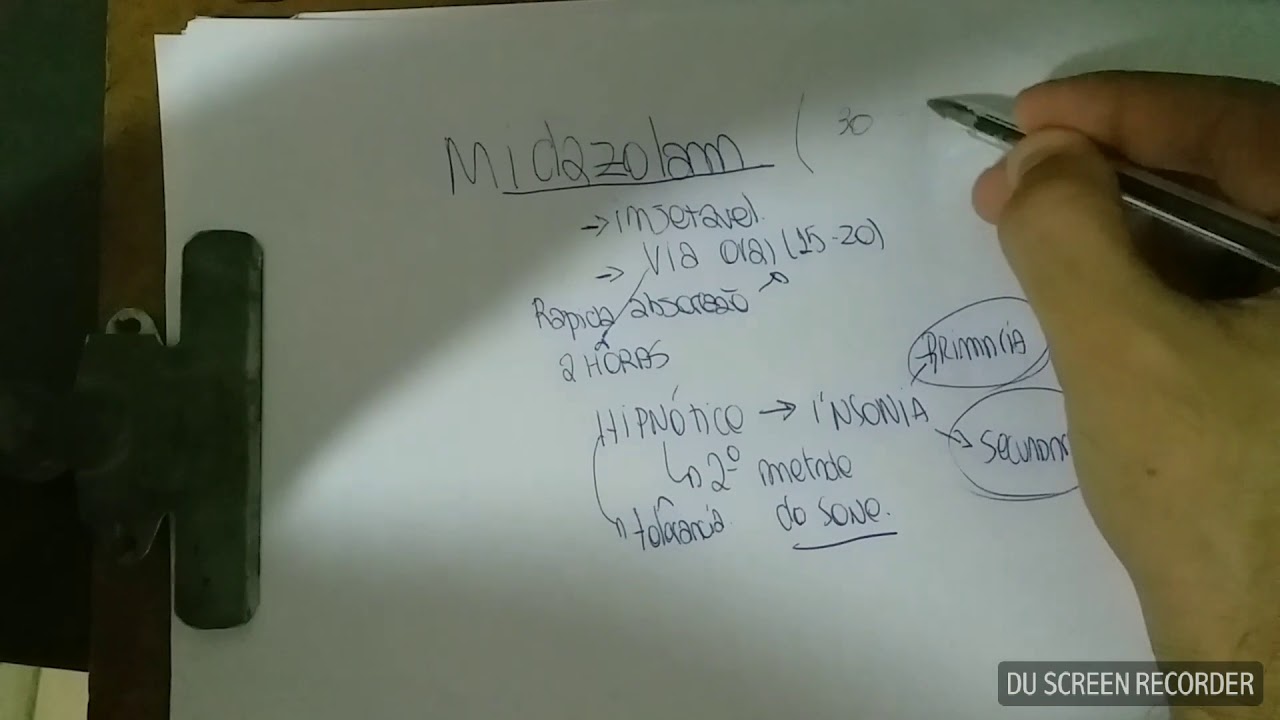 Midazolam ( 30
→ injetavel.
→ Via oral (15-20)
Rapida absorção
2 HORAS
HIPNÓTICO → INSONIA
→ PRIMARIA
→ SECUNDAR
↳ 2º metade
do sono.
↳ tolêrancia
DU SCREEN RECORDER